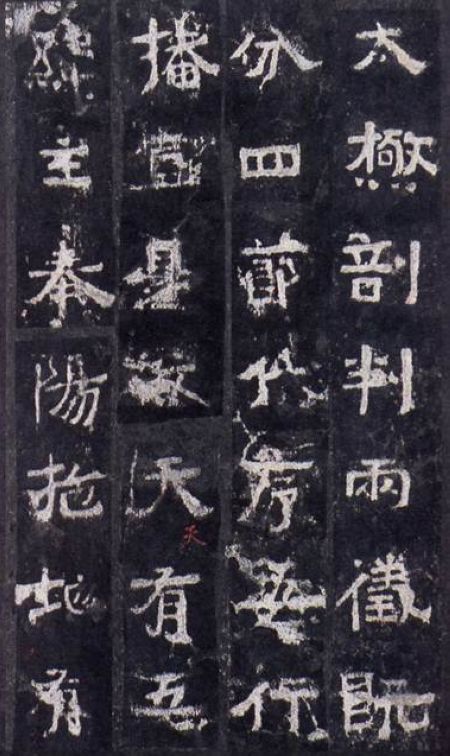 太極剖判兩徵既
分四節代序五行
播宣是故天有五
主奉陽施地有
天